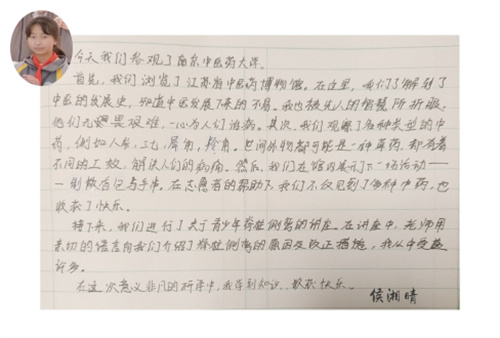 今天我们参观了南京中医药大学。
首先，我们浏览了江苏省中医药博物馆。在这里，我们了解到了
中医的发展史，知道中医发展下来的不易。我也被先人的智慧所折服，
他们无畏艰难，一心为人们治病。其次，我们观察了各种类型的中
药，例如人参，三七，犀角，羚角。世间外物都可能是一种草药，却有着
不同的工效，解决人们的病痛。然后，我们在馆内展示了一场活动——
制做香包与手串。在志愿者的帮助下，我们不仅见到了各种中药，也
收获了快乐。
接下来，我们进行了关于青少年脊柱侧弯的讲座。在讲座中，老师用
亲切的语言向我们介绍了脊柱侧弯的原因及改正措施，我从中受益
许多。
在这次意义非凡的研学中，我学到知识，收获快乐。
侯湘晴